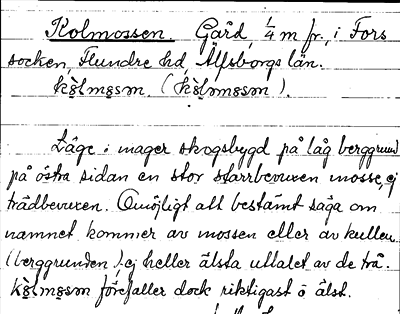 Kolmossen. Gård, 1/4 m fr., i Fors
socken, Flundre hd, Älfsborgs län.
kò̤lmo̤sən. (kò̤ləmo̤sən).
Läge i mager skogsbygd på låg berggrund
på östra sidan en stor starrbevuxen mosse, ej
trädbevuxen. Omöjligt att bestämt säga om
namnet kommer av mossen eller av kullen
(berggrunden), ej heller älsta uttalet av de två.
kò̤lmo̤sən förefaller dock riktigast o älst.